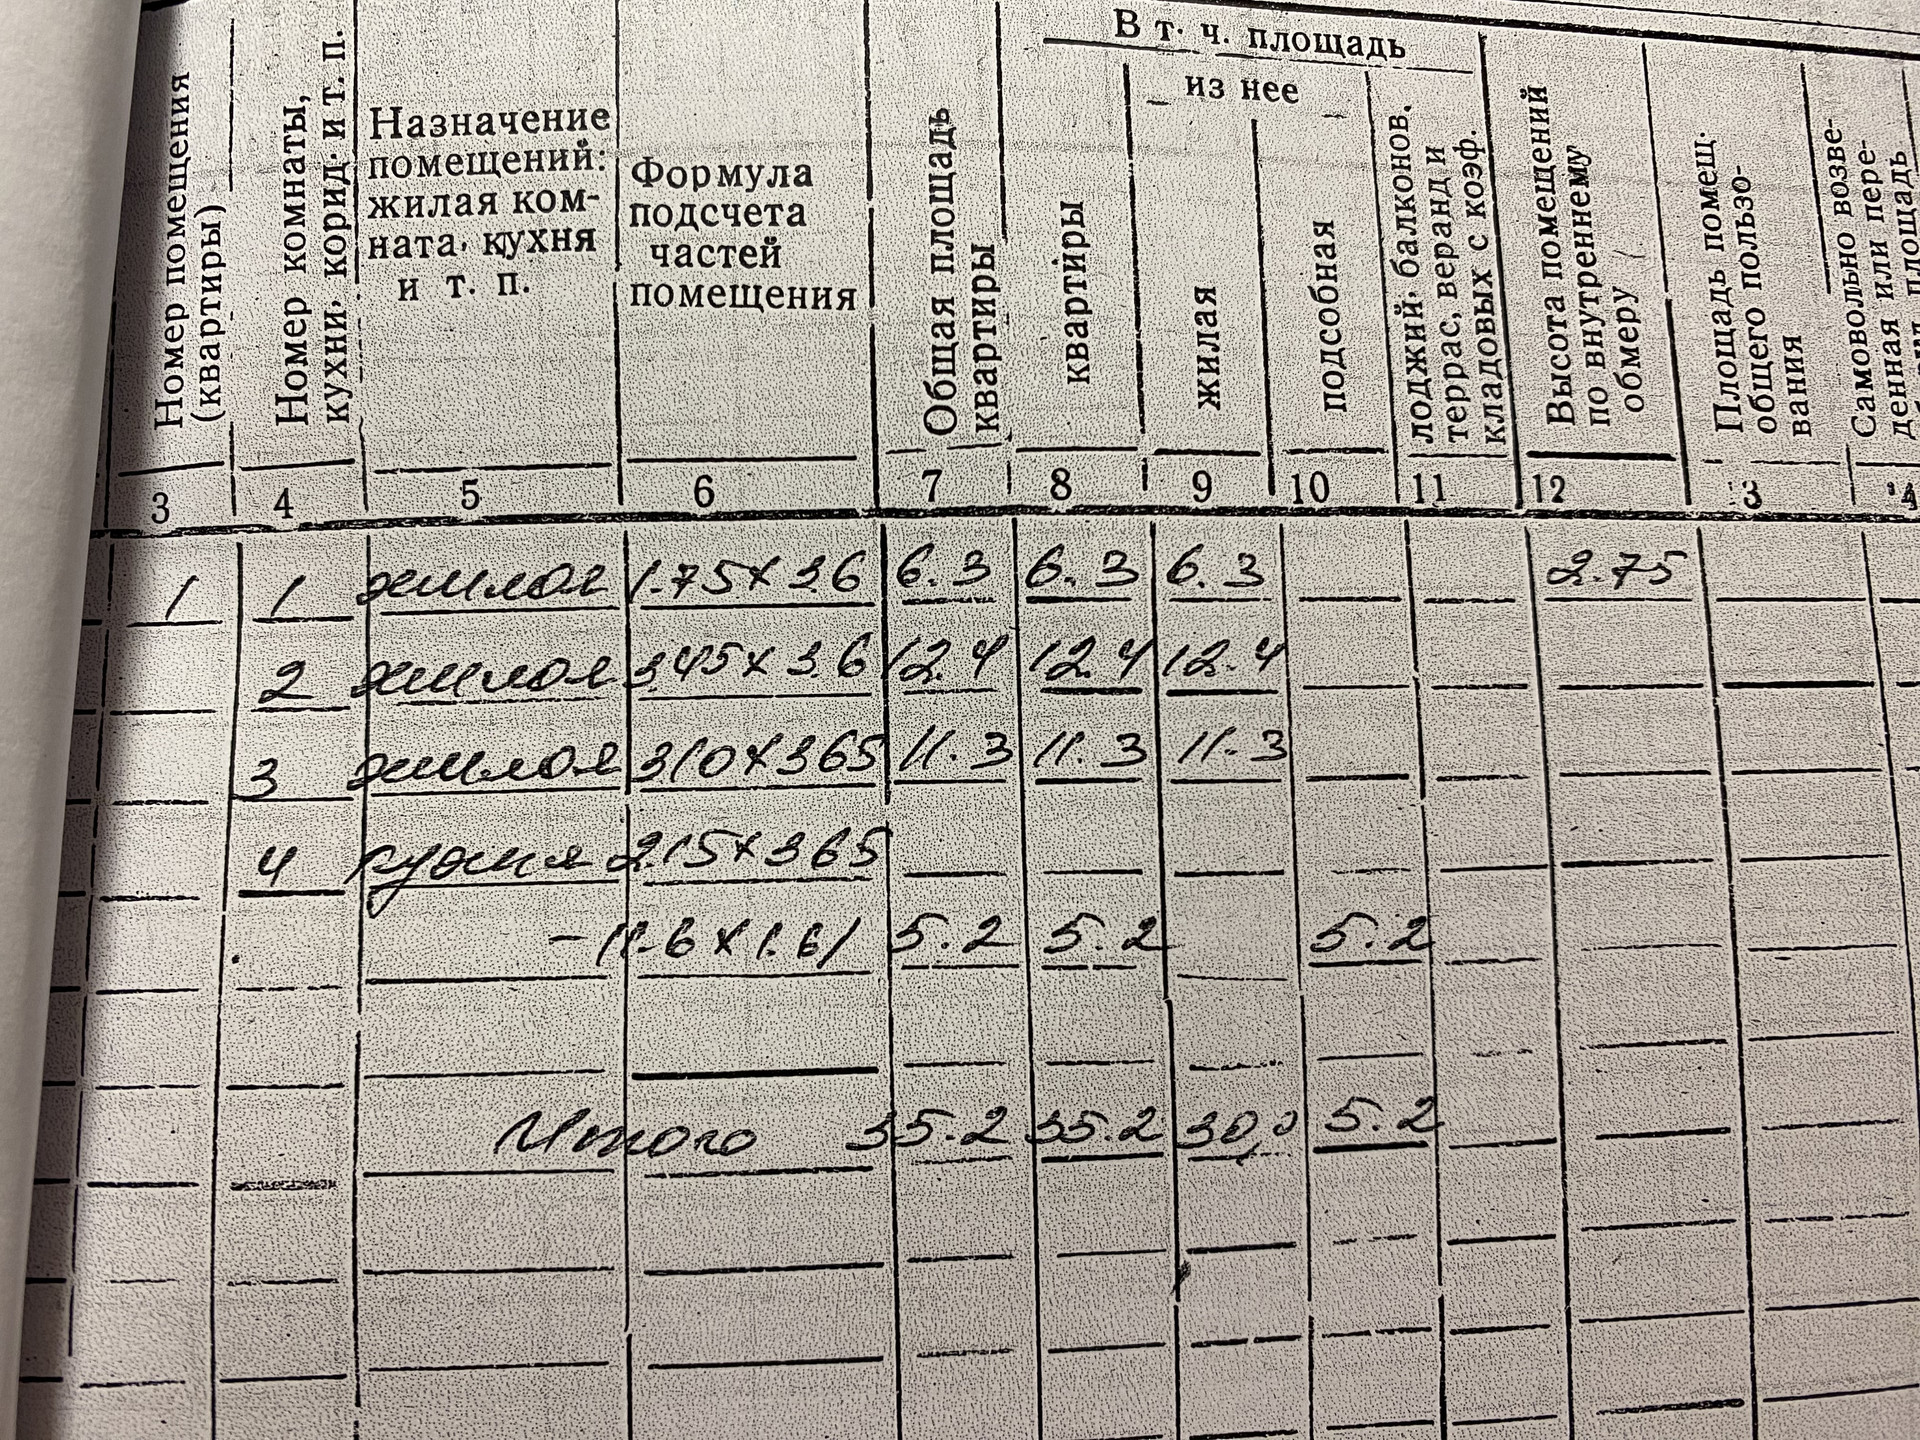 В т. ч. площадь
из нее
Номер помещения
(квартиры)
Номер комнаты,
кухни, корид. и т. п.
Назначение
помещений:
жилая ком-
ната, кухня
и т. п.
Формула
подсчета
частей
помещения
Общая площадь
квартиры
квартиры
жилая
подсобная
лоджий, балконов,
террас, веранд и
кладовых с коэф.
Высота помещений
по внутреннему
обмеру
Площадь помещ.
общего пользо-
вания
Самовольно возве-
денная или пере-
площадь
3 4 5 6 7 8 9 10 11 12
1 1 жилая 1.75х3.6 6.3 6.3 6.3 2.75
2 жилая 3.45х3.6 12.4 12.4 12.4
3 жилая 3.10х3.65 11.3 11.3 11.3
4 кухня 2.15х3.65
-(1.6х1.6) 5.2 5.2 5.2
Итого 35.2 35.2 30,0 5.2